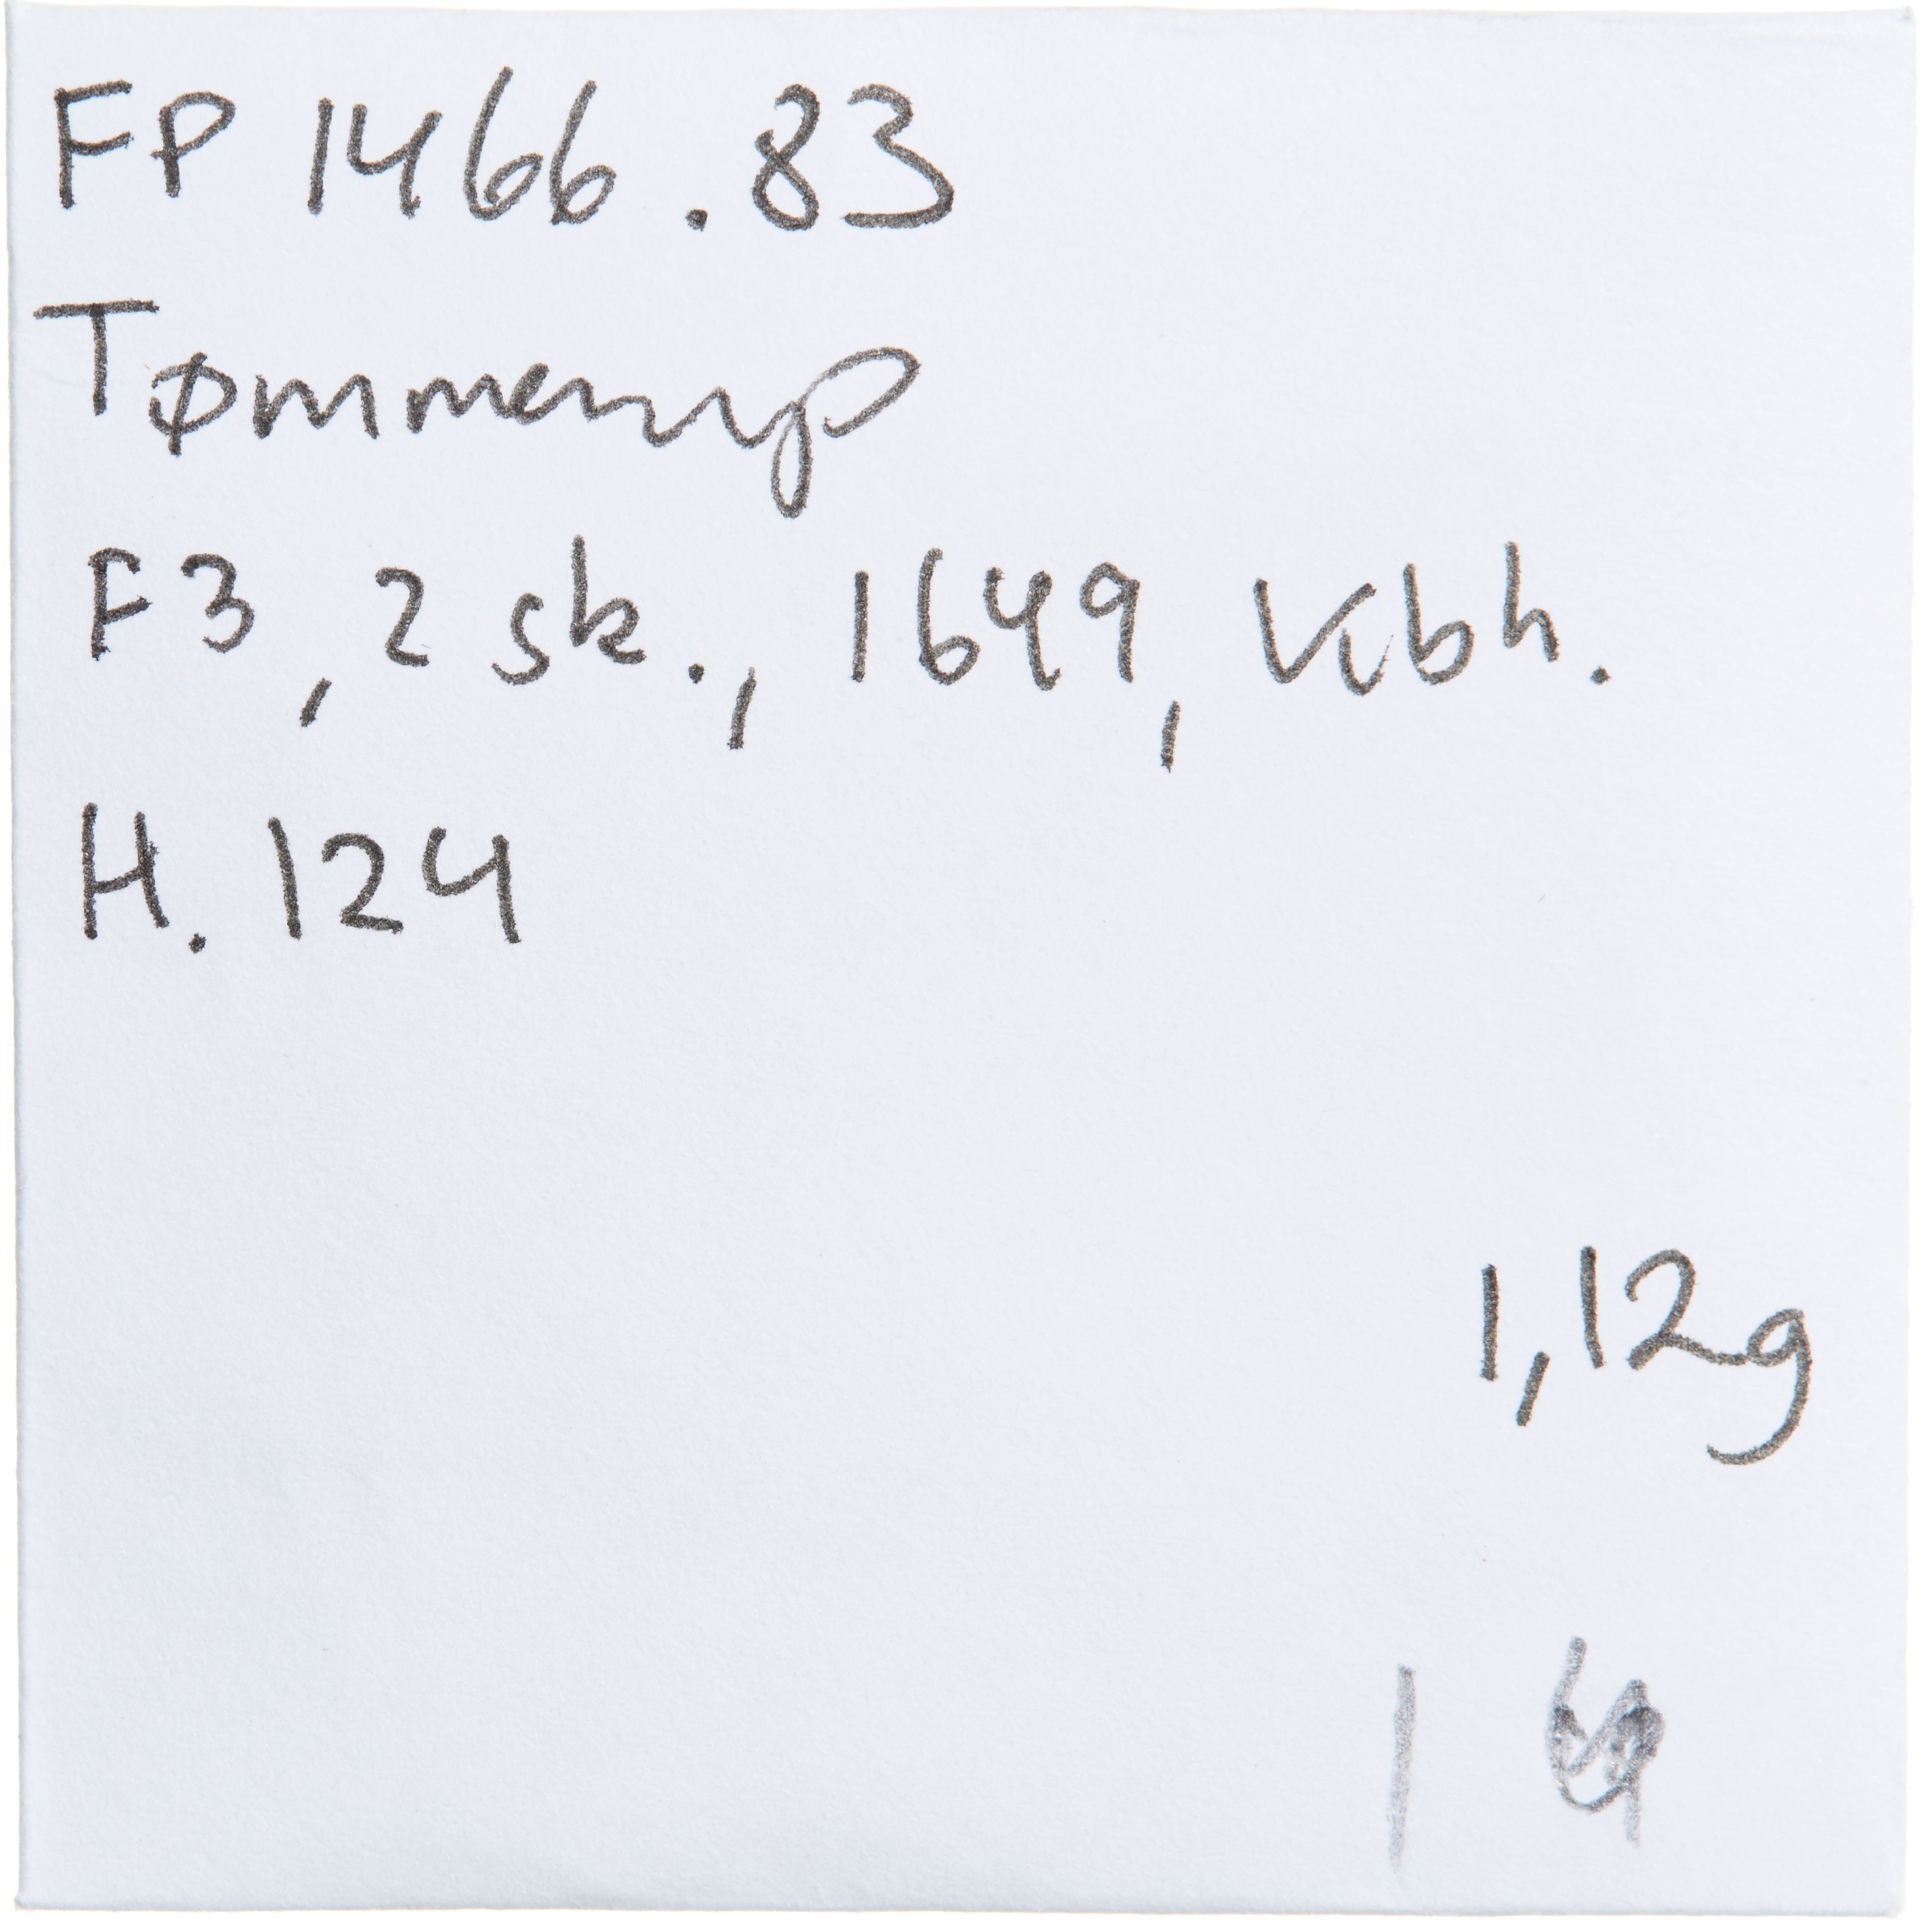 FP 1466.83
Tømmerup
F3, 2 sk., 1649, Kbh.
H. 124
1,12g
1